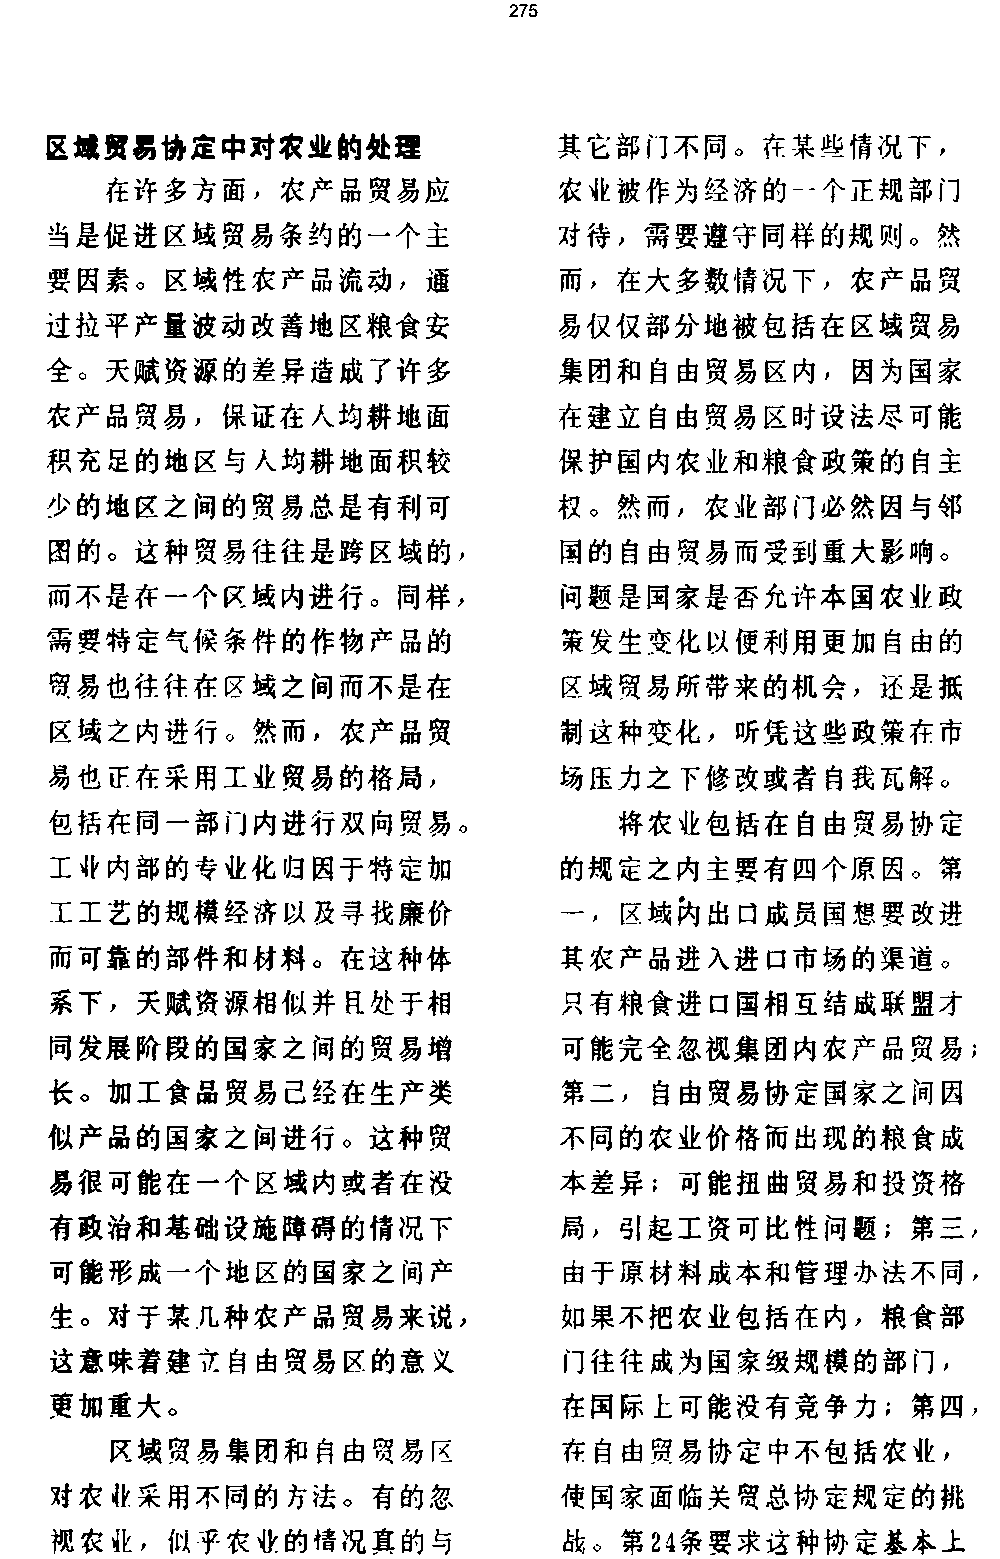 275
区域贸易协定中对农业的处理
在许多方面，农产品贸易应
当是促进区域贸易条约的一个主
要因素。区域性农产品流动，通
过拉平产量波动改善地区粮食安
全。天赋资源的差异造成了许多
农产品贸易，保证在人均耕地面
积充足的地区与人均耕地面积较
少的地区之间的贸易总是有利可
图的。这种贸易往往是跨区域的，
而不是在一个区域内进行。同样，
需要特定气候条件的作物产品的
贸易也往往在区域之间而不是在
区域之内进行。然而，农产品贸
易也正在采用工业贸易的格局，
包括在同一部门内进行双向贸易。
工业内部的专业化归因于特定加
工工艺的规模经济以及寻找廉价
而可靠的部件和材料。在这种体
系下，天赋资源相似并且处于相
同发展阶段的国家之间的贸易增
长。加工食品贸易已经在生产类
似产品的国家之间进行。这种贸
易很可能在一个区域内或者在没
有政治和基础设施障碍的情况下
可能形成一个地区的国家之间产
生。对于某几种农产品贸易来说，
这意味着建立自由贸易区的意义
更加重大。
区域贸易集团和自由贸易区
对农业采用不同的方法。有的忽
视农业，似乎农业的情况真的与
其它部门不同。在某些情况下，
农业被作为经济的一个正规部门
对待，需要遵守同样的规则。然
而，在大多数情况下，农产品贸
易仅仅部分地被包括在区域贸易
集团和自由贸易区内，因为国家
在建立自由贸易区时设法尽可能
保护国内农业和粮食政策的自主
权。然而，农业部门必然因与邻
国的自由贸易而受到重大影响。
问题是国家是否允许本国农业政
策发生变化以便利用更加自由的
区域贸易所带来的机会，还是抵
制这种变化，听凭这些政策在市
场压力之下修改或者自我瓦解。
将农业包括在自由贸易协定
的规定之内主要有四个原因。第
一，区域内出口成员国想要改进
其农产品进入进口市场的渠道。
只有粮食进口国相互结成联盟才
可能完全忽视集团内农产品贸易；
第二，自由贸易协定国家之间因
不同的农业价格而出现的粮食成
本差异；可能扭曲贸易和投资格
局，引起工资可比性问题；第三，
由于原材料成本和管理办法不同，
如果不把农业包括在内，粮食部
门往往成为国家级规模的部门，
在国际上可能没有竞争力；第四，
在自由贸易协定中不包括农业，
使国家面临关贸总协定规定的挑
战。第24条要求这种协定基本上